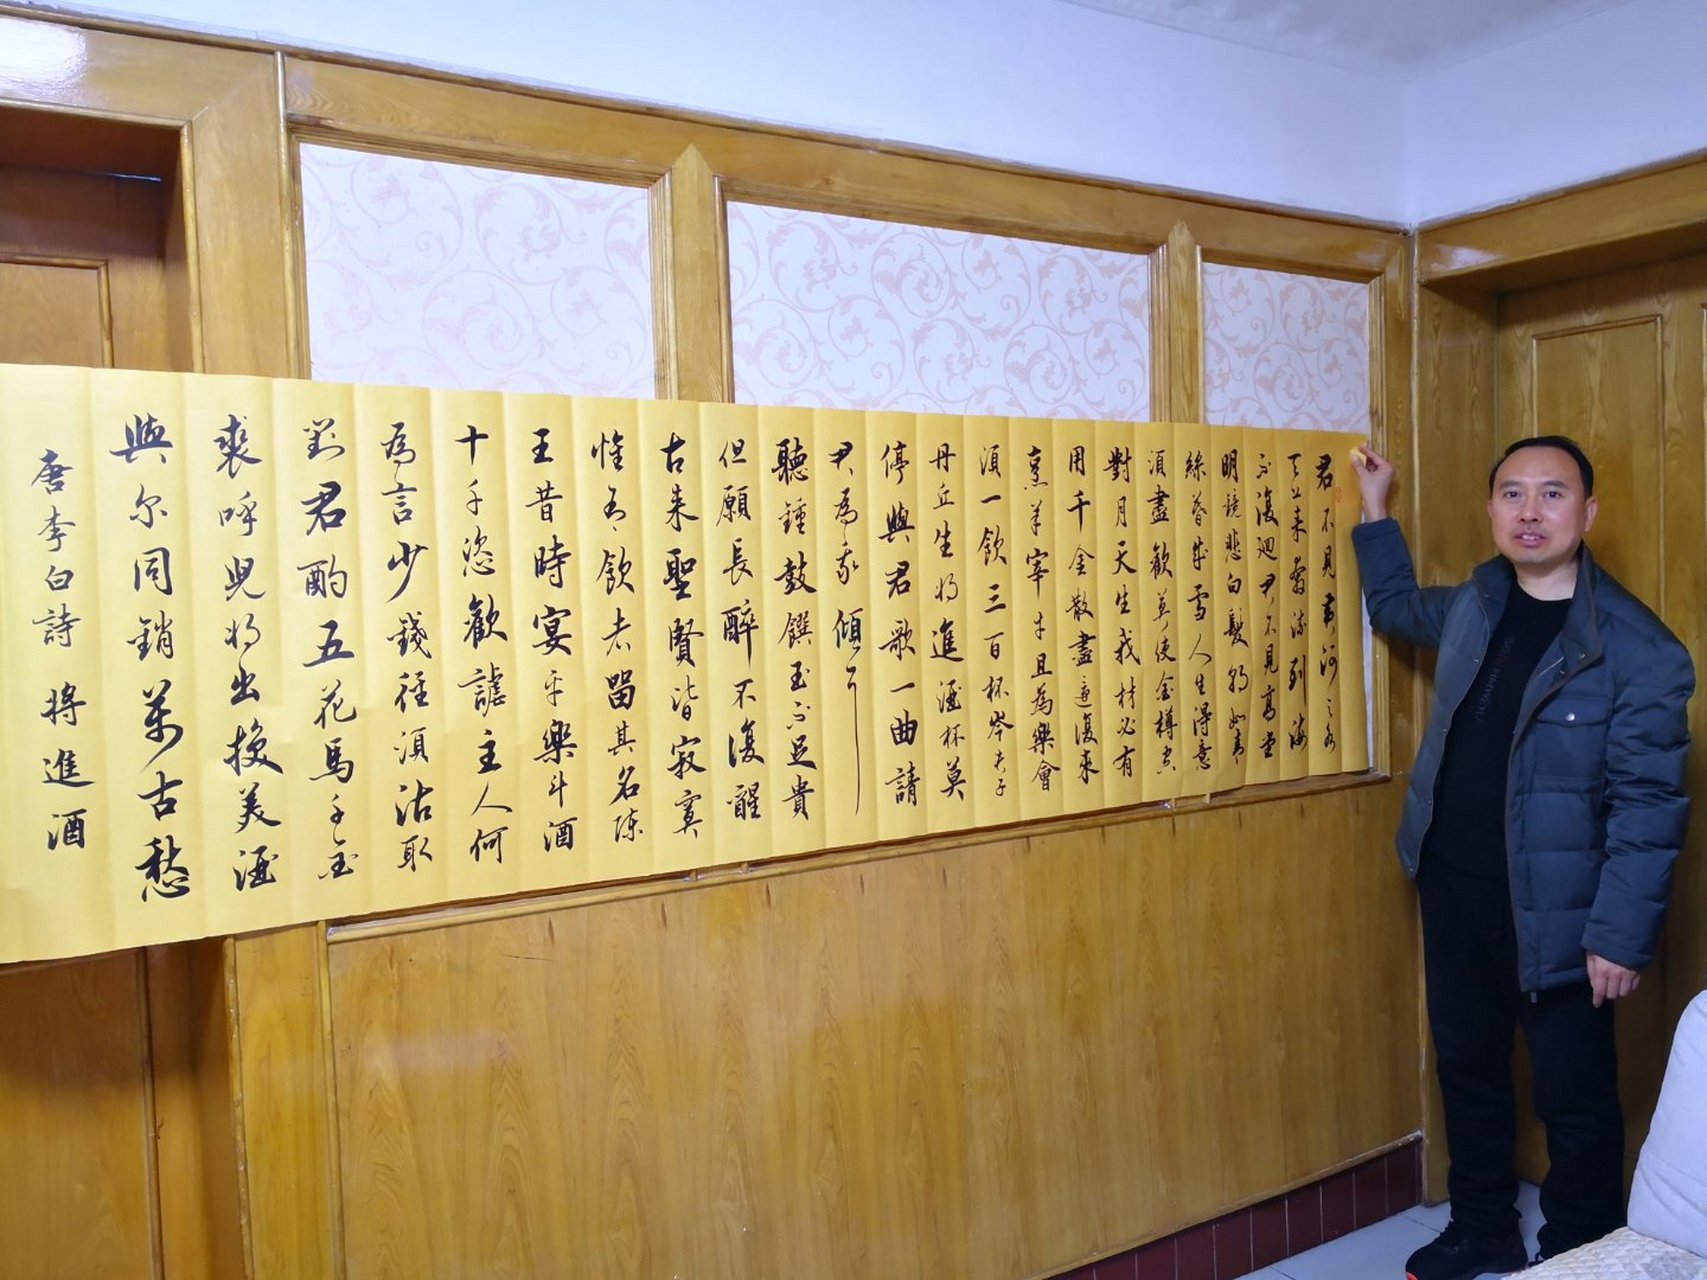 君不見黃河之水
天上來奔流到海
不復迴君不見高堂
明鏡悲白髮朝如青
絲暮成雪人生得意
須盡歡莫使金樽空
對月天生我材必有
用千金散盡還復來
烹羊宰牛且為樂會
須一飲三百杯岑夫子
丹丘生將進酒杯莫
停與君歌一曲請
君為我傾耳
聽鐘鼓饌玉不足貴
但願長醉不復醒
古來聖賢皆寂寞
惟有飲者留其名陳
王昔時宴平樂斗酒
十千恣歡謔主人何
為言少錢徑須沽取
對君酌五花馬千金
裘呼兒將出換美酒
與爾同銷萬古愁
唐李白詩 將進酒